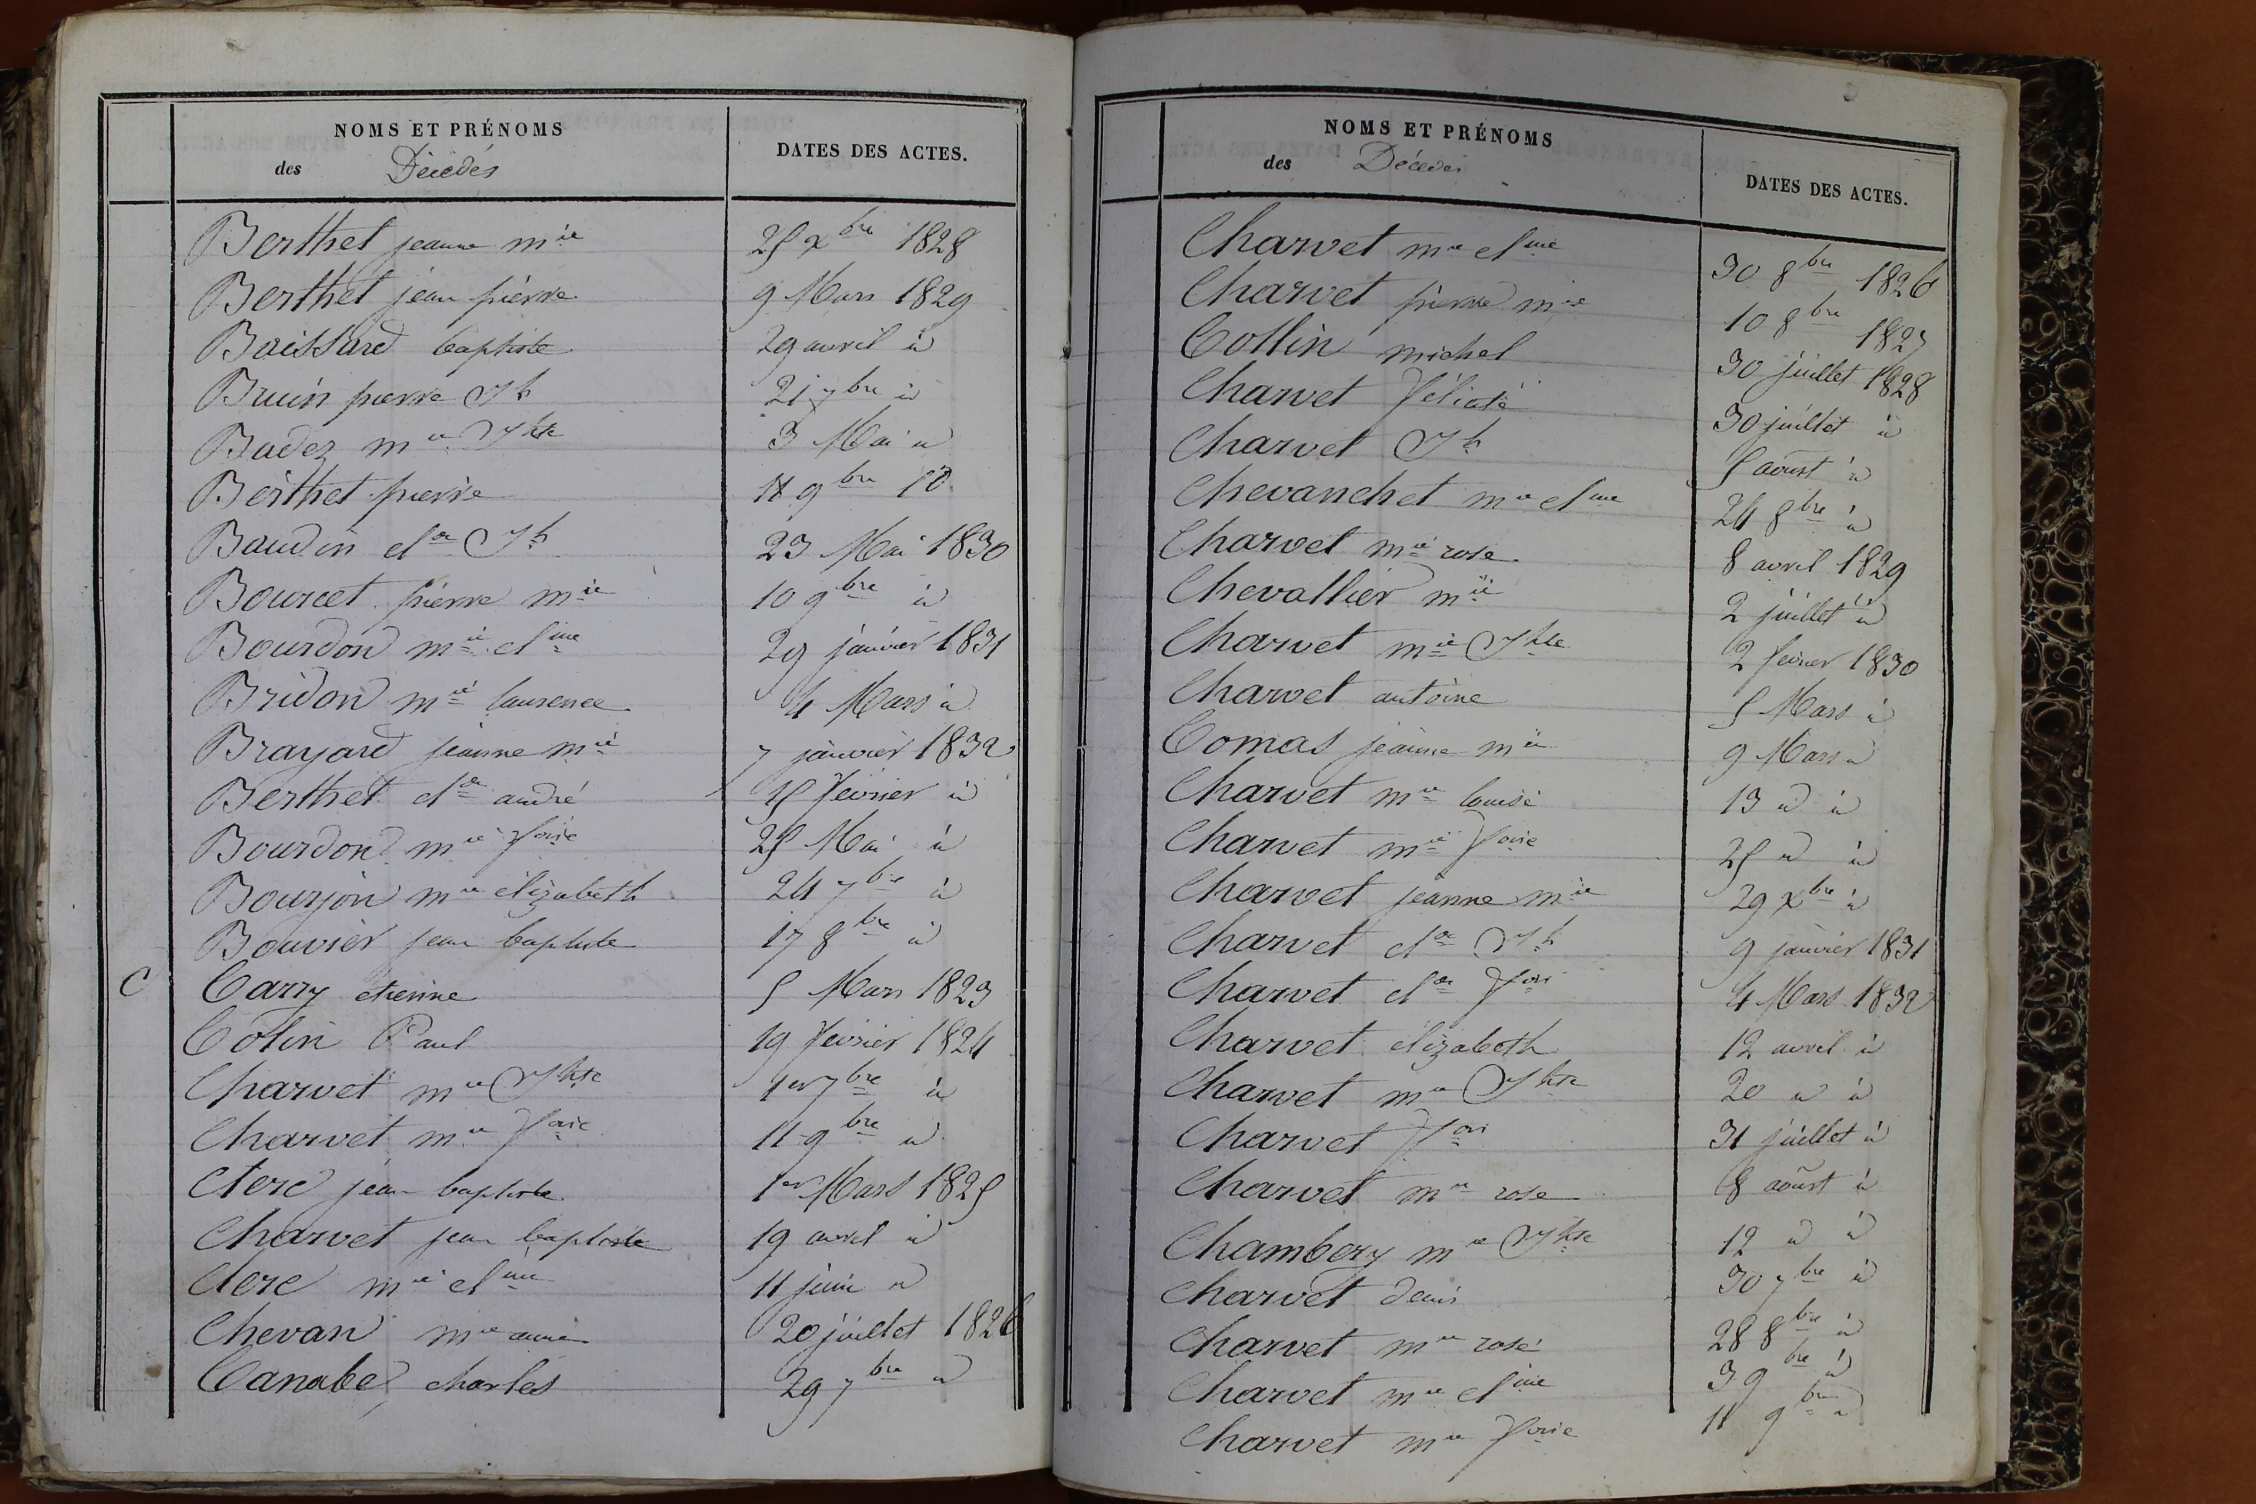 NOMS ET PRÉNOMS
des Décédés
DATES DES ACTES.
Berthet jeanne mie 25 xbre 1828
Berthet jean pierre 9 Mars 1829
Boissard baptiste 29 avril id
Bruin pierre Jh 21 7bre id
Badez mie Jhte 3 Mai id
Berthet pierre 11 9bre id
Baudin clde Jh 23 Mai 1830
Bourcet pierre mie 10 9bre id
Bourdon mie cline 29 janvier 1831
Bridon mie laurence 4 Mars id
Brayard jeanne mie 7 janvier 1832
Berthet clde andré 15 février id
Bourdon mie foise 25 Mai id
Bourjon mie élizabeth 24 7bre id
Bouvier jean baptiste 17 8bre id
C Carry étienne 5 Mars 1823
Colin Paul 19 février 1824
Charvet mie Jhte 1er 7bre id
Charvet mie foise 11 9bre id
Clerc jean baptiste 1er Mars 1825
Charvet jean baptiste 19 avril id
Clerc mie cline 11 juin id
Chevan mie anne 20 juillet 1826
Canabe charles 29 7bre id
NOMS ET PRÉNOMS
des Décédés
DATES DES ACTES.
Charvet mie cline 30 8bre 1826
Charvet pierre mie 10 8bre 1827
Collin michel 30 juillet 1828
Charvet félicité 30 juillet id
Charvet Jh 5 aoust id
Chevanchet mie cline 24 8bre id
Charvet mie rose 8 avril 1829
Chevallier mie 2 juillet id
Charvet mie Jhte 2 fevrier 1830
Charvet antoine 5 Mars id
Comas jeanne mie 9 Mars id
Charvet mie louise 13 id id
Charvet mie foise 25 id id
Charvet jeanne mie 29 xbre id
Charvet clde Jh 9 janvier 1831
Charvet clde fois 4 Mars 1832
Charvet élizabeth 12 avril id
Charvet mie Jhte 20 id id
Charvet fois 31 juillet id
Charvet mie rose 8 aoust id
Chambery mie Jhte 12 id id
Charvet denis 30 7bre id
Charvet mie rose 28 8bre id
Charvet mie cline 3 9bre id
Charvet mie foise 11 9bre id